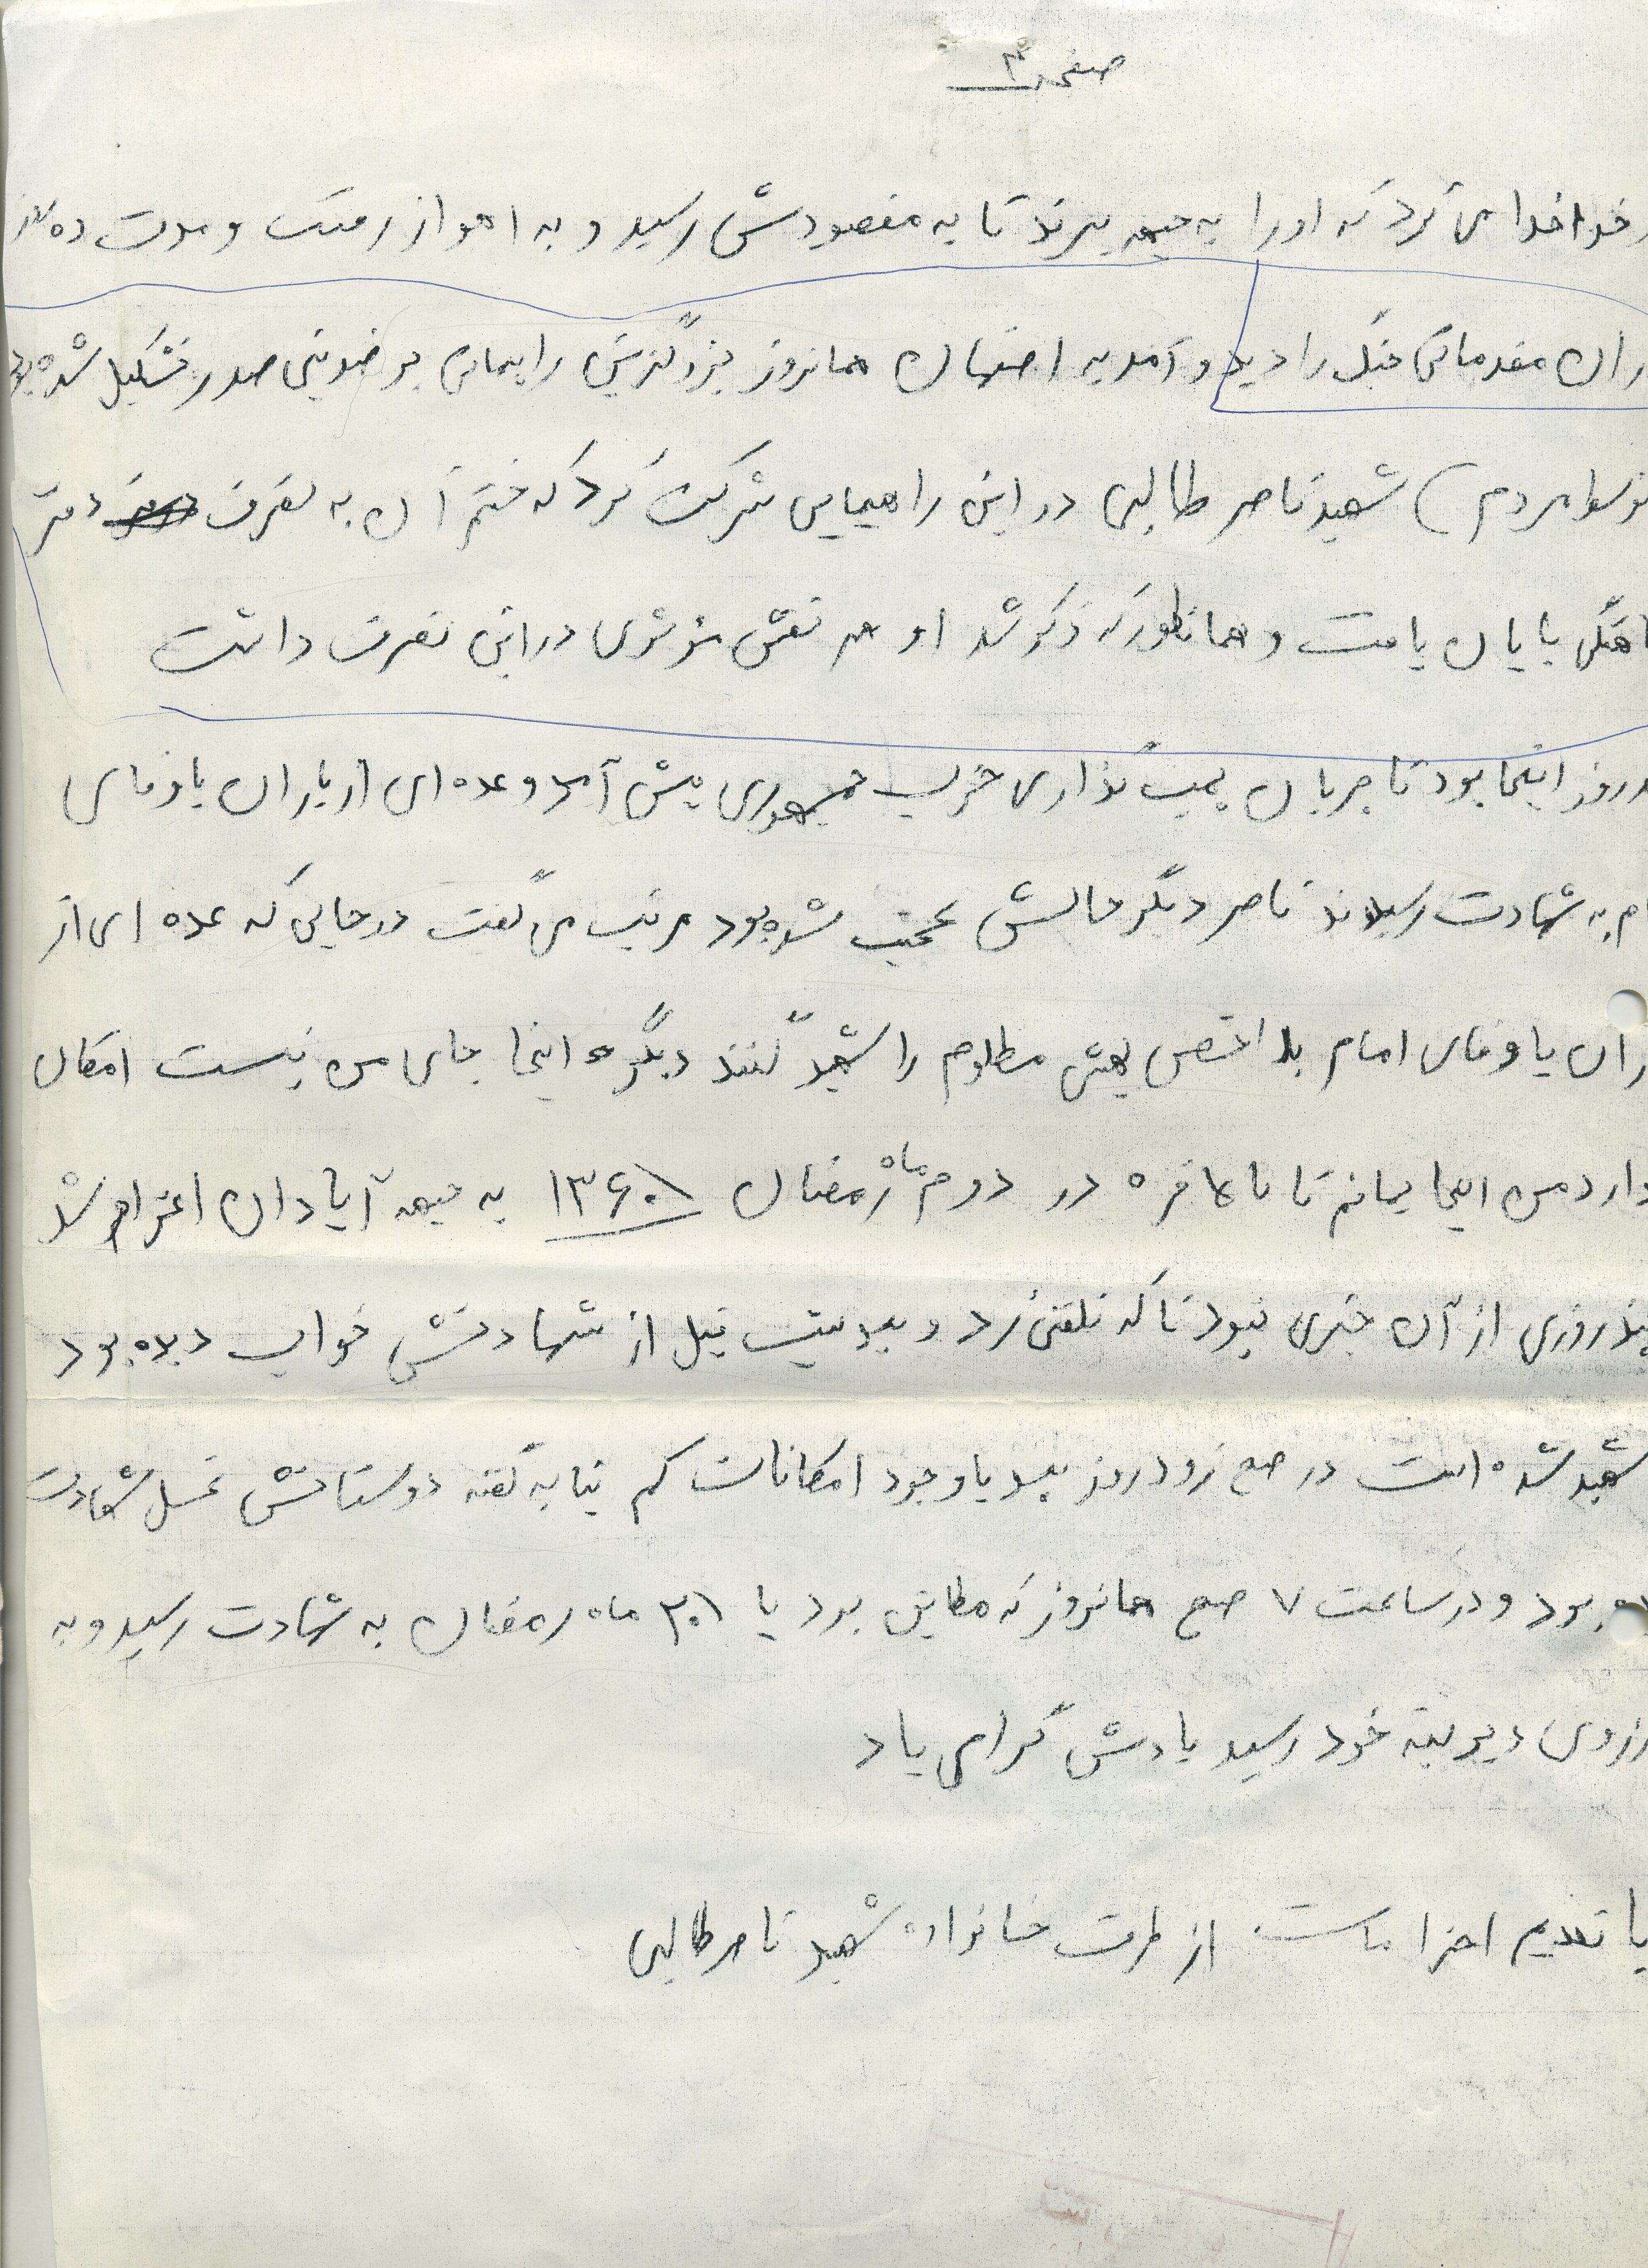 صفحه ۳
خدا خدا می کرد که او را به جبهه ببرند تا به مقصودش رسید و به اهواز رفت و مدت ده روز
ران مقدماتی جنگ را دید و آمد به اصفهان همانروز بزرگترین راپیمائی بر ضد بنی صدر تشکیل شده بود
توسط مردم) شهید ناصر طالبی در این راهپیمایی شرکت کرد که ختم آن به تصرف دفتر
هماهنگی پایان یافت و همانطور که ذکر شد او هم نقش موثری در این تصرف داشت
روز اینجا بود تا جریان بمب گذاری حزب جمهوری پیش آمد و عده ای از یاران باوفای
ام به شهادت رسیدند ناصر دیگر حالش عجیب شده بود مرتب می گفت در جایی که عده ای از
ران باوفای امام بلاخص بهشتی مظلوم را شهید کنند دیگر اینجا جای من نیست امکان
دارد من اینجا بمانم تا بالاخره در دوم ماه رمضان ۱۳۶۰ به جبهه آبادان اعزام شد
چند روزی از آن خبری نبود تا که تلفنی زد و بعد شب قبل از شهادتش خواب دیده بود
شهید شده است در صبح زود روز بعد با وجود امکانات کم بنا به گفته دوستانش غسل شهادت
بود و در ساعت ۷ صبح همانروز که مطابق بود با ۲۰ ماه رمضان به شهادت رسید و به
رزوی دیرینه خود رسید یادش گرامی باد
با تقدیم احترامات از طرف خانواده شهید ناصر طالبی